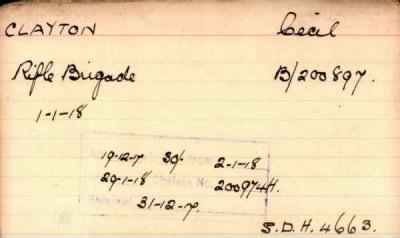 CLAYTON Cecil
Rifle Brigade B/200897.
1-1-18
19-12-17 30/- from 2-1-18
29-1-18 Chelsea No. 200974H.
31-12-17.
S.D.H. 4663.